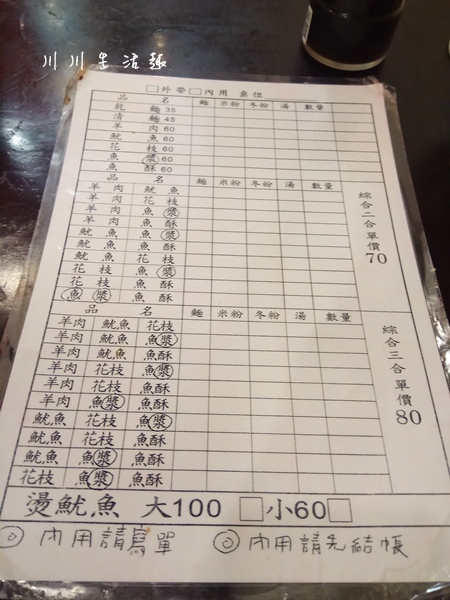 川川生活趣
□外帶□內用 桌位
品 名 麵 米粉 冬粉 湯 數量
乾 麵 35
清 麵 45
羊 肉 60
魷 魚 60
花 枝 60
魚 漿 60
魚 酥 60
品 名 麵 米粉 冬粉 湯 數量
羊肉 魷魚
羊肉 花枝
羊肉 魚漿
羊肉 魚酥
魷魚 魚漿
魷魚 花枝
魷魚 魚酥
花枝 魚漿
花枝 魚酥
魚漿 魚酥
綜合二合單價70
品 名 麵 米粉 冬粉 湯 數量
羊肉 魷魚 花枝
羊肉 魷魚 魚漿
羊肉 魷魚 魚酥
羊肉 花枝 魚漿
羊肉 花枝 魚酥
羊肉 魚漿 魚酥
魷魚 花枝 魚漿
魷魚 花枝 魚酥
魷魚 魚漿 魚酥
花枝 魚漿 魚酥
綜合三合單價80
燙魷魚 大100 □小60□
◎ 內用請寫單 ◎ 內用請先結帳